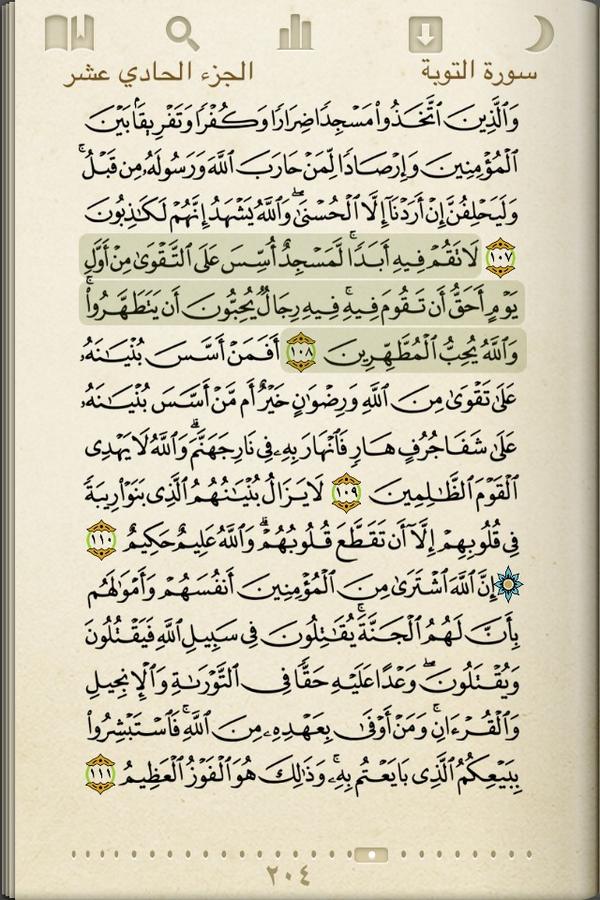 سورة التوبة
الجزء الحادي عشر
وَالَّذِينَ اتَّخَذُوا۟ مَسْجِدًا ضِرَارًا وَكُفْرًا وَتَفْرِيقًۢا بَيْنَ
الْمُؤْمِنِينَ وَإِرْصَادًا لِّمَنْ حَارَبَ اللَّهَ وَرَسُولَهُۥ مِن قَبْلُ ۚ
وَلَيَحْلِفُنَّ إِنْ أَرَدْنَآ إِلَّا الْحُسْنَىٰ ۖ وَاللَّهُ يَشْهَدُ إِنَّهُمْ لَكَـٰذِبُونَ
١٠٧ لَا تَقُمْ فِيهِ أَبَدًا ۚ لَّمَسْجِدٌ أُسِّسَ عَلَى التَّقْوَىٰ مِنْ أَوَّلِ
يَوْمٍ أَحَقُّ أَن تَقُومَ فِيهِ ۚ فِيهِ رِجَالٌ يُحِبُّونَ أَن يَتَطَهَّرُوا۟ ۚ
وَاللَّهُ يُحِبُّ الْمُطَّهِّرِينَ ١٠٨ أَفَمَنْ أَسَّسَ بُنْيَـٰنَهُۥ
عَلَىٰ تَقْوَىٰ مِنَ اللَّهِ وَرِضْوَٰنٍ خَيْرٌ أَم مَّنْ أَسَّسَ بُنْيَـٰنَهُۥ
عَلَىٰ شَفَا جُرُفٍ هَارٍ فَانْهَارَ بِهِۦ فِى نَارِ جَهَنَّمَ ۗ وَاللَّهُ لَا يَهْدِى
الْقَوْمَ الظَّـٰلِمِينَ ١٠٩ لَا يَزَالُ بُنْيَـٰنُهُمُ الَّذِى بَنَوْا۟ رِيبَةً
فِى قُلُوبِهِمْ إِلَّآ أَن تَقَطَّعَ قُلُوبُهُمْ ۗ وَاللَّهُ عَلِيمٌ حَكِيمٌ ١١٠
۞ إِنَّ اللَّهَ اشْتَرَىٰ مِنَ الْمُؤْمِنِينَ أَنفُسَهُمْ وَأَمْوَٰلَهُم
بِأَنَّ لَهُمُ الْجَنَّةَ ۚ يُقَـٰتِلُونَ فِى سَبِيلِ اللَّهِ فَيَقْتُلُونَ
وَيُقْتَلُونَ ۖ وَعْدًا عَلَيْهِ حَقًّا فِى التَّوْرَىٰةِ وَالْإِنجِيلِ
وَالْقُرْءَانِ ۚ وَمَنْ أَوْفَىٰ بِعَهْدِهِۦ مِنَ اللَّهِ ۚ فَاسْتَبْشِرُوا۟
بِبَيْعِكُمُ الَّذِى بَايَعْتُم بِهِۦ ۚ وَذَٰلِكَ هُوَ الْفَوْزُ الْعَظِيمُ ١١١
٢٠٤